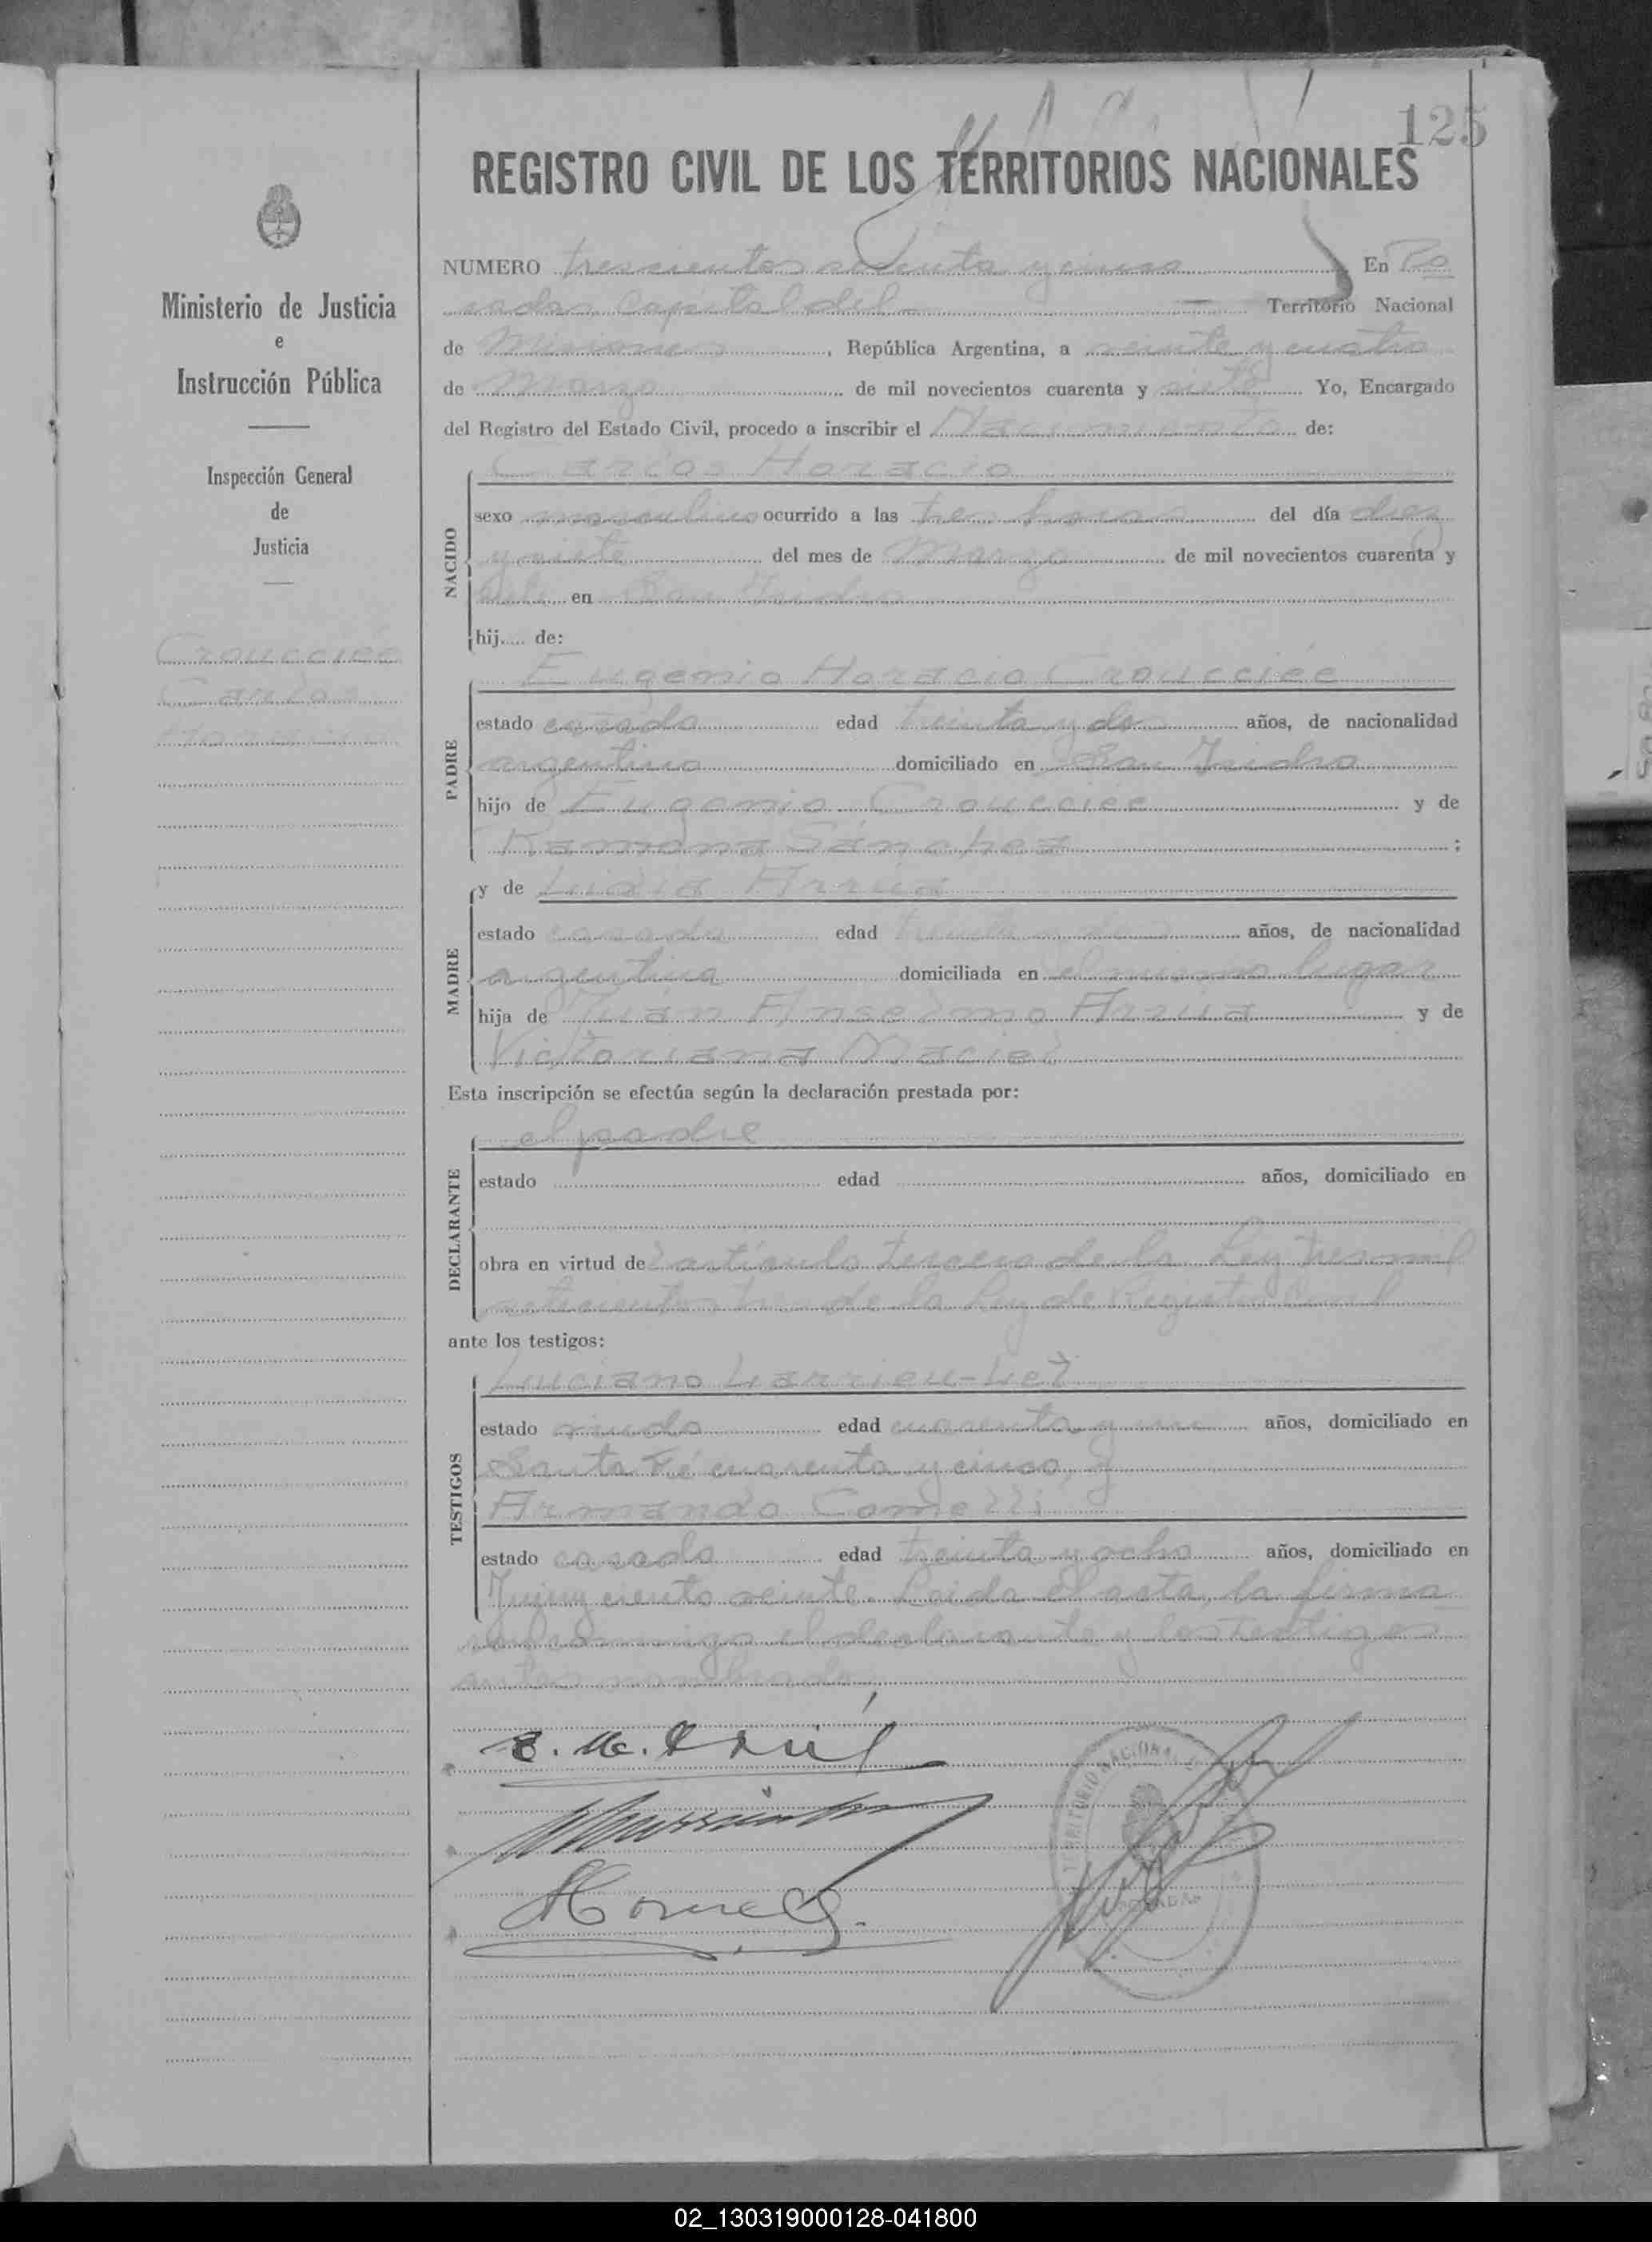 125
REGISTRO CIVIL DE LOS TERRITORIOS NACIONALES
Ministerio de Justicia
e
Instrucción Pública
Inspección General
de
Justicia
Crouccieé
Carlos
Horacio
NUMERO trescientos y cinco En Po
sadas Capital del Territorio Nacional
de Misiones, República Argentina, a veinte y cuatro
de Marzo de mil novecientos cuarenta y siete Yo, Encargado
del Registro del Estado Civil, procedo a inscribir el Nacimiento de:
Carlos Horacio
NACIDO
sexo masculino ocurrido a las tres horas del día diez
y siete del mes de Marzo de mil novecientos cuarenta y
siete en San Isidro
hij..... de:
Eugenio Horacio Crouccieé
PADRE
estado casado edad treinta y dos años, de nacionalidad
argentino domiciliado en San Isidro
hijo de Eugenio Crouccieé y de
Ramona Sánchez ;
y de Lidia Arrúa
MADRE
estado casada edad treinta y dos años, de nacionalidad
argentina domiciliada en el mismo lugar
hija de Juan Anselmo Arrúa y de
Victoriana Maciel
Esta inscripción se efectúa según la declaración prestada por:
el padre
DECLARANTE
estado edad años, domiciliado en
obra en virtud del artículo tercero de la Ley tres mil
setecientos tres de la Ley de Registro Civil
ante los testigos:
Luciano Larrieu-Let
TESTIGOS
estado viudo edad cuarenta y uno años, domiciliado en
Santa Fé cuarenta y cinco, y
Armando Comelli
estado casado edad treinta y ocho años, domiciliado en
Jujuy ciento veinte. Leida el acta, la firma
con conmigo el declarante y los testigos
antes nombrados
TERRITORIO NACIONAL
POSADAS
02_130319000128-041800